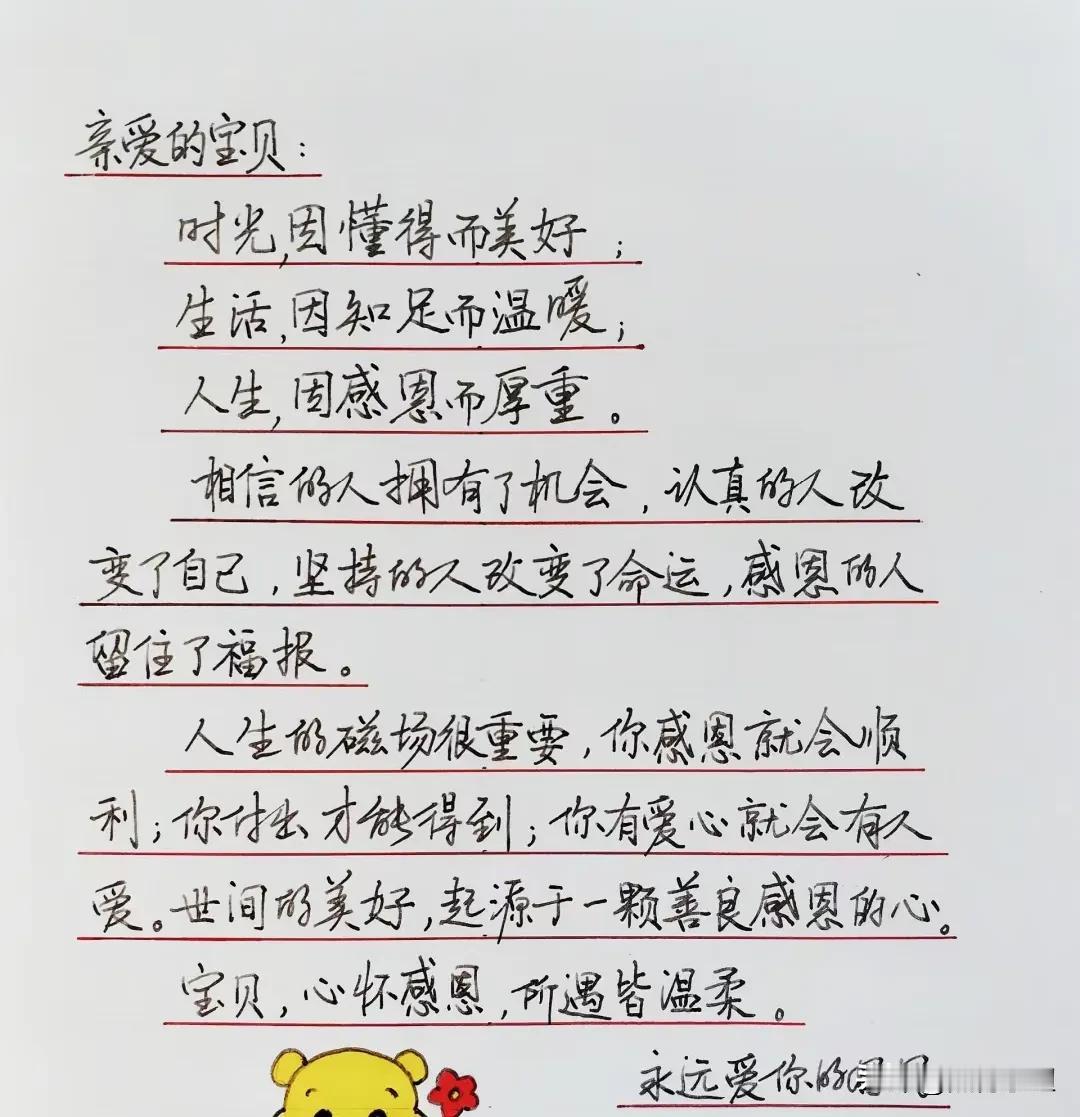 亲爱的宝贝：
时光,因懂得而美好；
生活,因知足而温暖；
人生,因感恩而厚重。
相信的人拥有了机会，认真的人改
变了自己，坚持的人改变了命运，感恩的人
留住了福报。
人生的磁场很重要，你感恩就会顺
利；你付出才能得到；你有爱心就会有人
爱。世间的美好，起源于一颗善良感恩的心。
宝贝，心怀感恩，所遇皆温柔。
永远爱你的